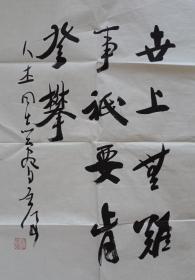 世上無難
事祇要肯
登攀
人杰同志